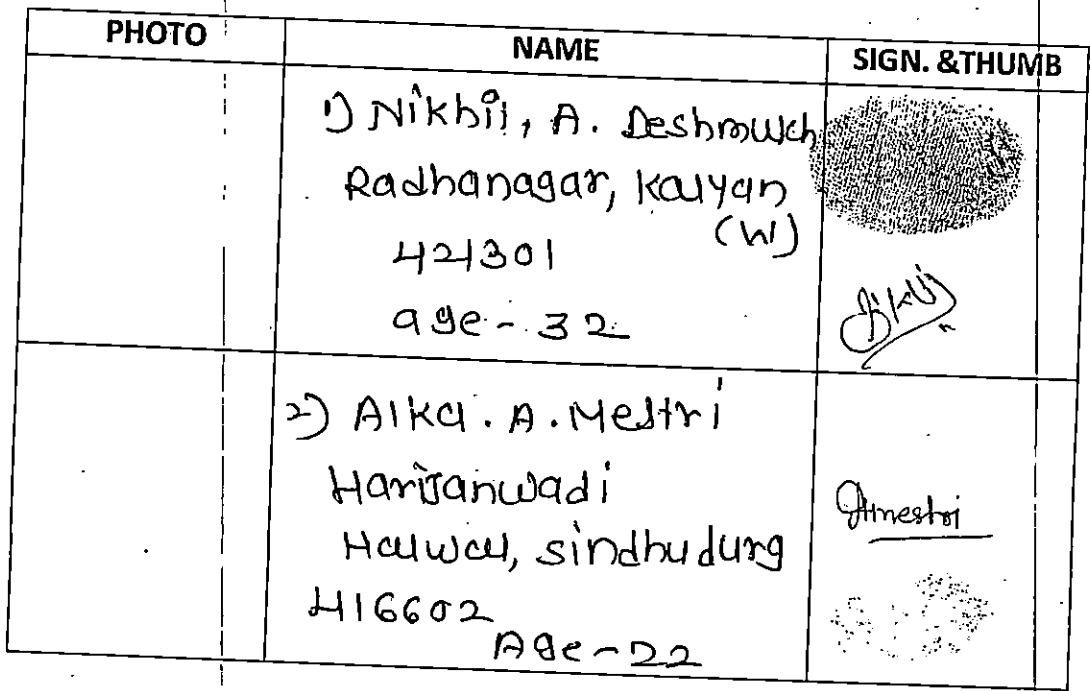 PHOTO NAME SIGN. &THUMB
1) Nikhil, A. Deshmukh
Radhanagar, Kalyan
(W)
421301
age - 32
2) Alka. A. Mestri
Harijanwadi
Halwal, sindhudurg
416602
Age - 22
Amestri